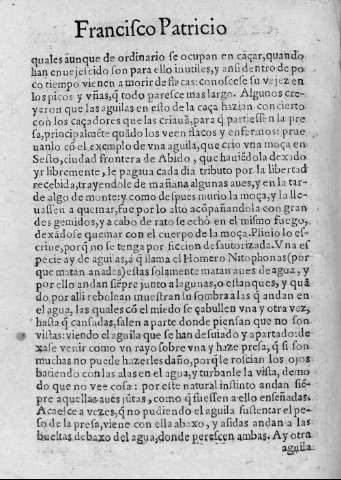 Francisco Patricio
quales aunque de ordinario se ocupan en caçar, quando
han enuejescido son para ello inutiles, y ansi dentro de po
co tiempo vienen a morir de flacas: conoscese su vejez en
los picos y vñas, q̃ todo paresce mas largo. Algunos cre-
yeron que las aguilas en esto de la caça hazian concierto
con los caçadores que las criauã, para q̃ partiessen la pre
sa, principalmẽte quãdo los veen flacos y enfermos: prue
uanlo cõ el exemplo de vna aguila, que crio vna moça en
Sesto, ciudad frontera de Abido, que hauiẽdola dexado
yr libremente, le pagaua cada dia tributo por la libertad
recebida, trayendole de mañana algunas aues, y en la tar-
de algo de monte: y como despues murio la moça, y la lle-
uassen a quemar, fue por lo alto acõpañandola con gran
des gemidos, y a cabo de rato se echò en el mismo fuego,
dexãdose quemar con el cuerpo de la moça. Plinio lo es-
criue, porq̃ no se tenga por ficcion desautorizada. Vna es
pecie ay de aguilas, a q̃ llama el Homero Nitophonas (por
que matan anades) estas solamente matan aues de agua, y
por ello andan siẽpre junto a lagunas, o estanques, y quã
do por alli rebolean muestran su sombra a las q̃ andan en
el agua, las quales cõ el miedo se çabullen vna y otra vez,
hasta q̃ cansadas, salen a parte donde piensan que no son
vistas: viendo el aguila que se han desuiado y apartado: de
xase venir como vn rayo sobre vna y haze presa, q̃ si son
muchas no puede hazerles daño, porq̃ le roscian los ojos
batiendo con las alas en el agua, y turbanle la vista, demo
do que no vee cosa: por este natural instinto andan siẽ-
pre aquellas aues jũtas, como q̃ fuessen a ello enseñadas.
Acaesce a vezes, q̃ no pudiendo el aguila sustentar el pe-
so de la presa, viene con ella abaxo, y asidas andan a las
bueltas debaxo del agua, donde perescen ambas. Ay otra
aguila